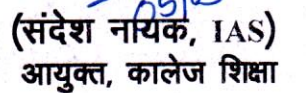 (संदेश नायक, IAS)
आयुक्त, कालेज शिक्षा